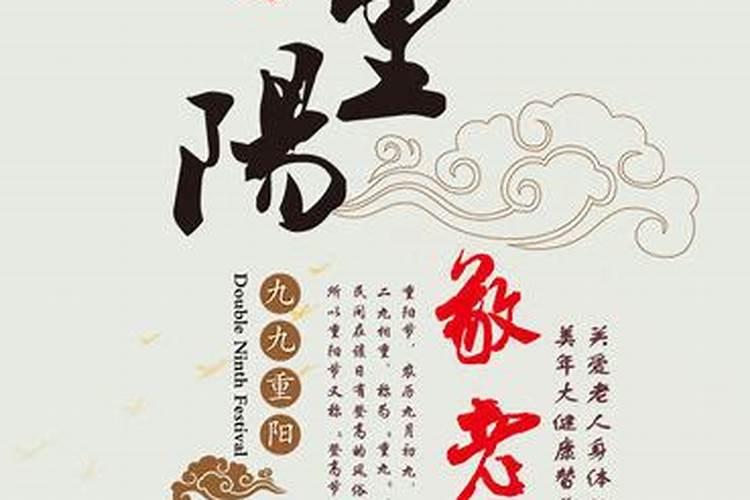 重
陽
敬老
关爱老人身体
美年大健康替
重阳节，农历九月初九，
二九相重，称为。重九。
民间在该日有登高的风俗
所以重阳节又称。登高节
九九重阳
Double Ninth Festival